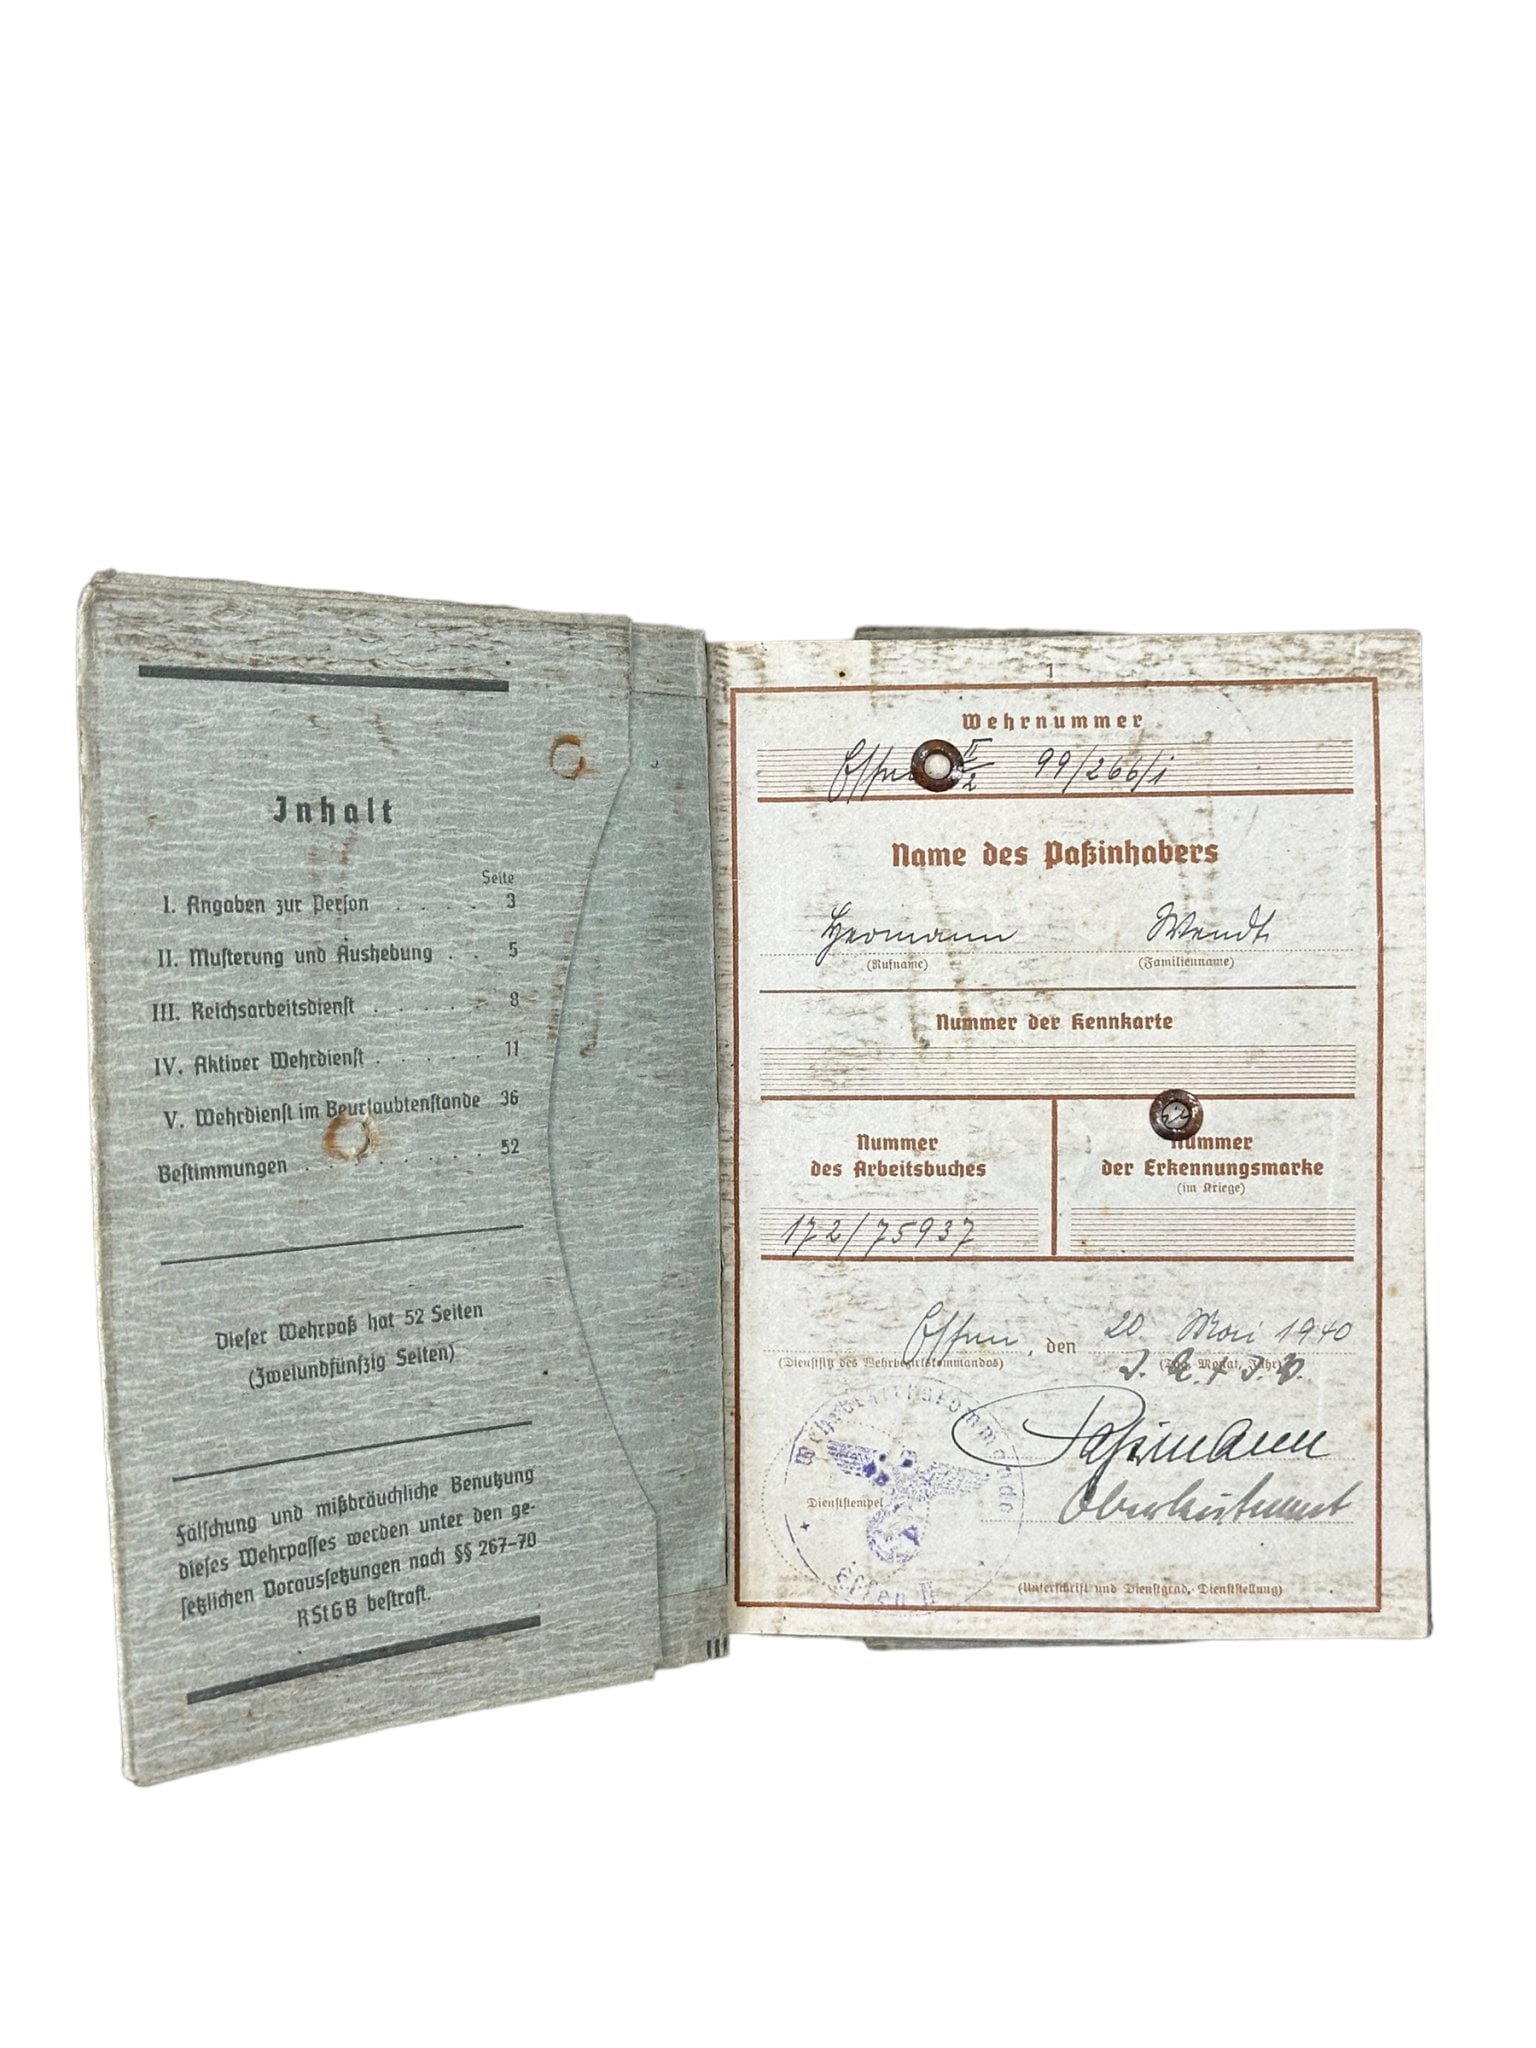 Inhalt
Seite
I. Angaben zur Person . . . . . 3
II. Musterung und Aushebung . . 5
III. Reichsarbeitsdienst . . . . . . 8
IV. Aktiver Wehrdienst . . . . . . 11
V. Wehrdienst im Beurlaubtenstande 36
Bestimmungen . . . . . . . . . 52
Dieser Wehrpaß hat 52 Seiten
(Zweiundfünfzig Seiten)
Fälschung und mißbräuchliche Benutzung
dieses Wehrpasses werden unter den ge-
setzlichen Voraussetzungen nach §§ 267-70
RStGB bestraft.
1
Wehrnummer
Essen II/2 99/266/1
Name des Paßinhabers
Hermann Wendt
(Rufname) (Familienname)
Nummer der Kennkarte
Nummer
des Arbeitsbuches
Nummer
der Erkennungsmarke
(im Kriege)
172/75937
Essen, den 20. Mai 1940
(Dienstsitz des Wehrbezirkskommandos) (Tag, Monat, Jahr)
Wehrbezirkskommando
Essen II
Dienststempel
Oberleutnant
(Unterschrift und Dienstgrad, Dienststellung)